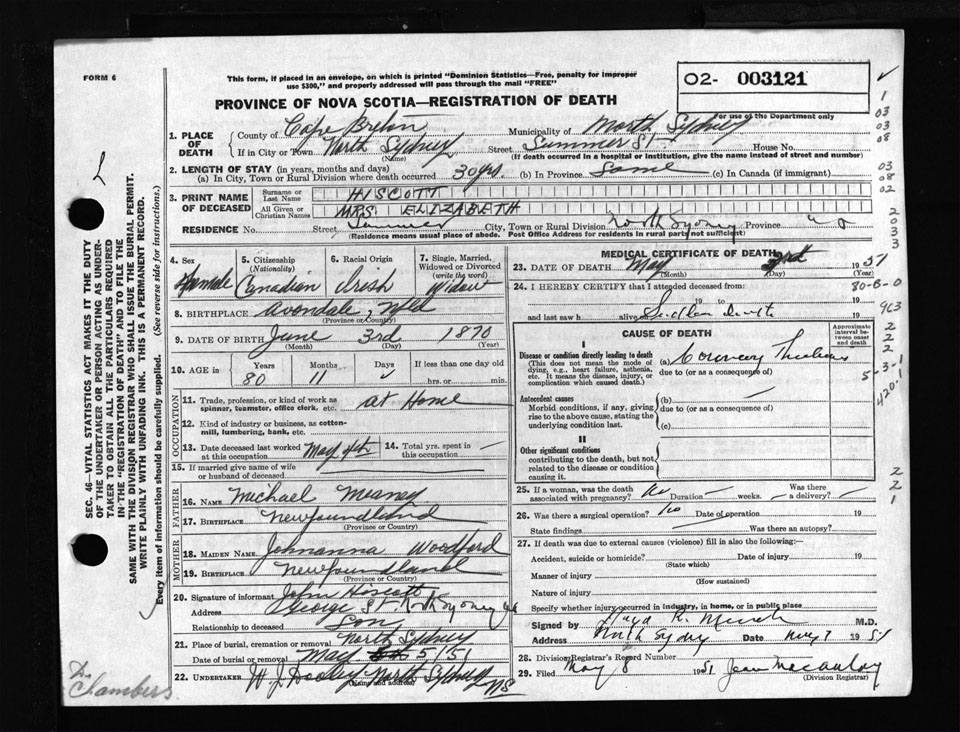 FORM 6
This form, if placed in an envelope, on which is printed "Dominion Statistics—Free, penalty for improper
use $300," and properly addressed will pass through the mail "FREE"
O2- 003121
For use of the Department only
PROVINCE OF NOVA SCOTIA—REGISTRATION OF DEATH
1. PLACE OF DEATH
County of Cape Breton Municipality of North Sydney
If in City or Town North Sydney Street Summer St. House No.
(Name) (If death occurred in a hospital or institution, give the name instead of street and number)
2. LENGTH OF STAY (in years, months and days)
(a) In City, Town or Rural Division where death occurred 30 yrs. (b) In Province Same (c) In Canada (if immigrant)
3. PRINT NAME OF DECEASED
Surname or Last Name HISCOTT
All Given or Christian Names MRS ELIZABETH
RESIDENCE No. Street Summer City, Town or Rural Division North Sydney Province
(Residence means usual place of abode. Post Office Address for residents in rural parts not sufficient)
4. Sex Female
5. Citizenship (Nationality) Canadian
6. Racial Origin Irish
7. Single, Married, Widowed or Divorced (write the word) Widow
8. BIRTHPLACE Avondale, Nfld
(Province or Country)
9. DATE OF BIRTH June 3rd 1870
(Month) (Day) (Year)
10. AGE in Years 80 Months 11 Days hrs. or min.
OCCUPATION
11. Trade, profession, or kind of work as spinner, teamster, office clerk, etc. at Home
12. Kind of industry or business, as cotton-mill, lumbering, bank, etc.
13. Date deceased last worked at this occupation May 4th
14. Total yrs. spent in this occupation —
15. If married give name of wife or husband of deceased
FATHER
16. NAME Michael Meaney
17. BIRTHPLACE Newfoundland
(Province or Country)
MOTHER
18. MAIDEN NAME Johnanna Woodford
19. BIRTHPLACE Newfoundland
(Province or Country)
20. Signature of informant John Hiscott
Address George St North Sydney
Relationship to deceased Son
21. Place of burial, cremation or removal North Sydney
Date of burial or removal May 5/51
22. UNDERTAKER W J Dooley North Sydney NS
(Name and address)
MEDICAL CERTIFICATE OF DEATH
23. DATE OF DEATH May 3rd 1951
(Month) (Day) (Year)
24. I HEREBY CERTIFY that I attended deceased from:
19 to 19
and last saw h alive Sudden death 19
CAUSE OF DEATH
Approximate interval between onset and death
I
Disease or condition directly leading to death
(This does not mean the mode of dying, e.g., heart failure, asthenia, etc. It means the disease, injury, or complication which caused death.)
(a) Coronary Thrombosis
due to (or as a consequence of)
Antecedent causes
Morbid conditions, if any, giving rise to the above cause, stating the underlying condition last.
(b) —
due to (or as a consequence of)
(c)
II
Other significant conditions
contributing to the death, but not related to the disease or condition causing it.
25. If a woman, was the death associated with pregnancy? No Duration — weeks. Was there a delivery? —
26. Was there a surgical operation? No Date of operation 19
State findings Was there an autopsy?
27. If death was due to external causes (violence) fill in also the following:—
Accident, suicide or homicide? Date of injury 19
(State which)
Manner of injury
(How sustained)
Nature of injury
Specify whether injury occurred in industry, in home, or in public place
Signed by M.D.
Address North Sydney Date May 7 1951
28. Division Registrar's Record Number
29. Filed May 8 1951 Jean MacAulay
(Division Registrar)
SEC. 46—VITAL STATISTICS ACT MAKES IT THE DUTY
OF THE UNDERTAKER OR PERSON ACTING AS UNDER-
TAKER TO OBTAIN ALL THE PARTICULARS REQUIRED
IN THE "REGISTRATION OF DEATH" AND TO FILE THE
SAME WITH THE DIVISION REGISTRAR WHO SHALL ISSUE THE BURIAL PERMIT.
WRITE PLAINLY WITH UNFADING INK. THIS IS A PERMANENT RECORD.
Every item of information should be carefully supplied. (See reverse side for instructions.)
D. Chambers
1
03
03
08
03
08
02
2
0
3
3
80-6-0
963
2
2
2
5-3-1
420.1
2
2
1